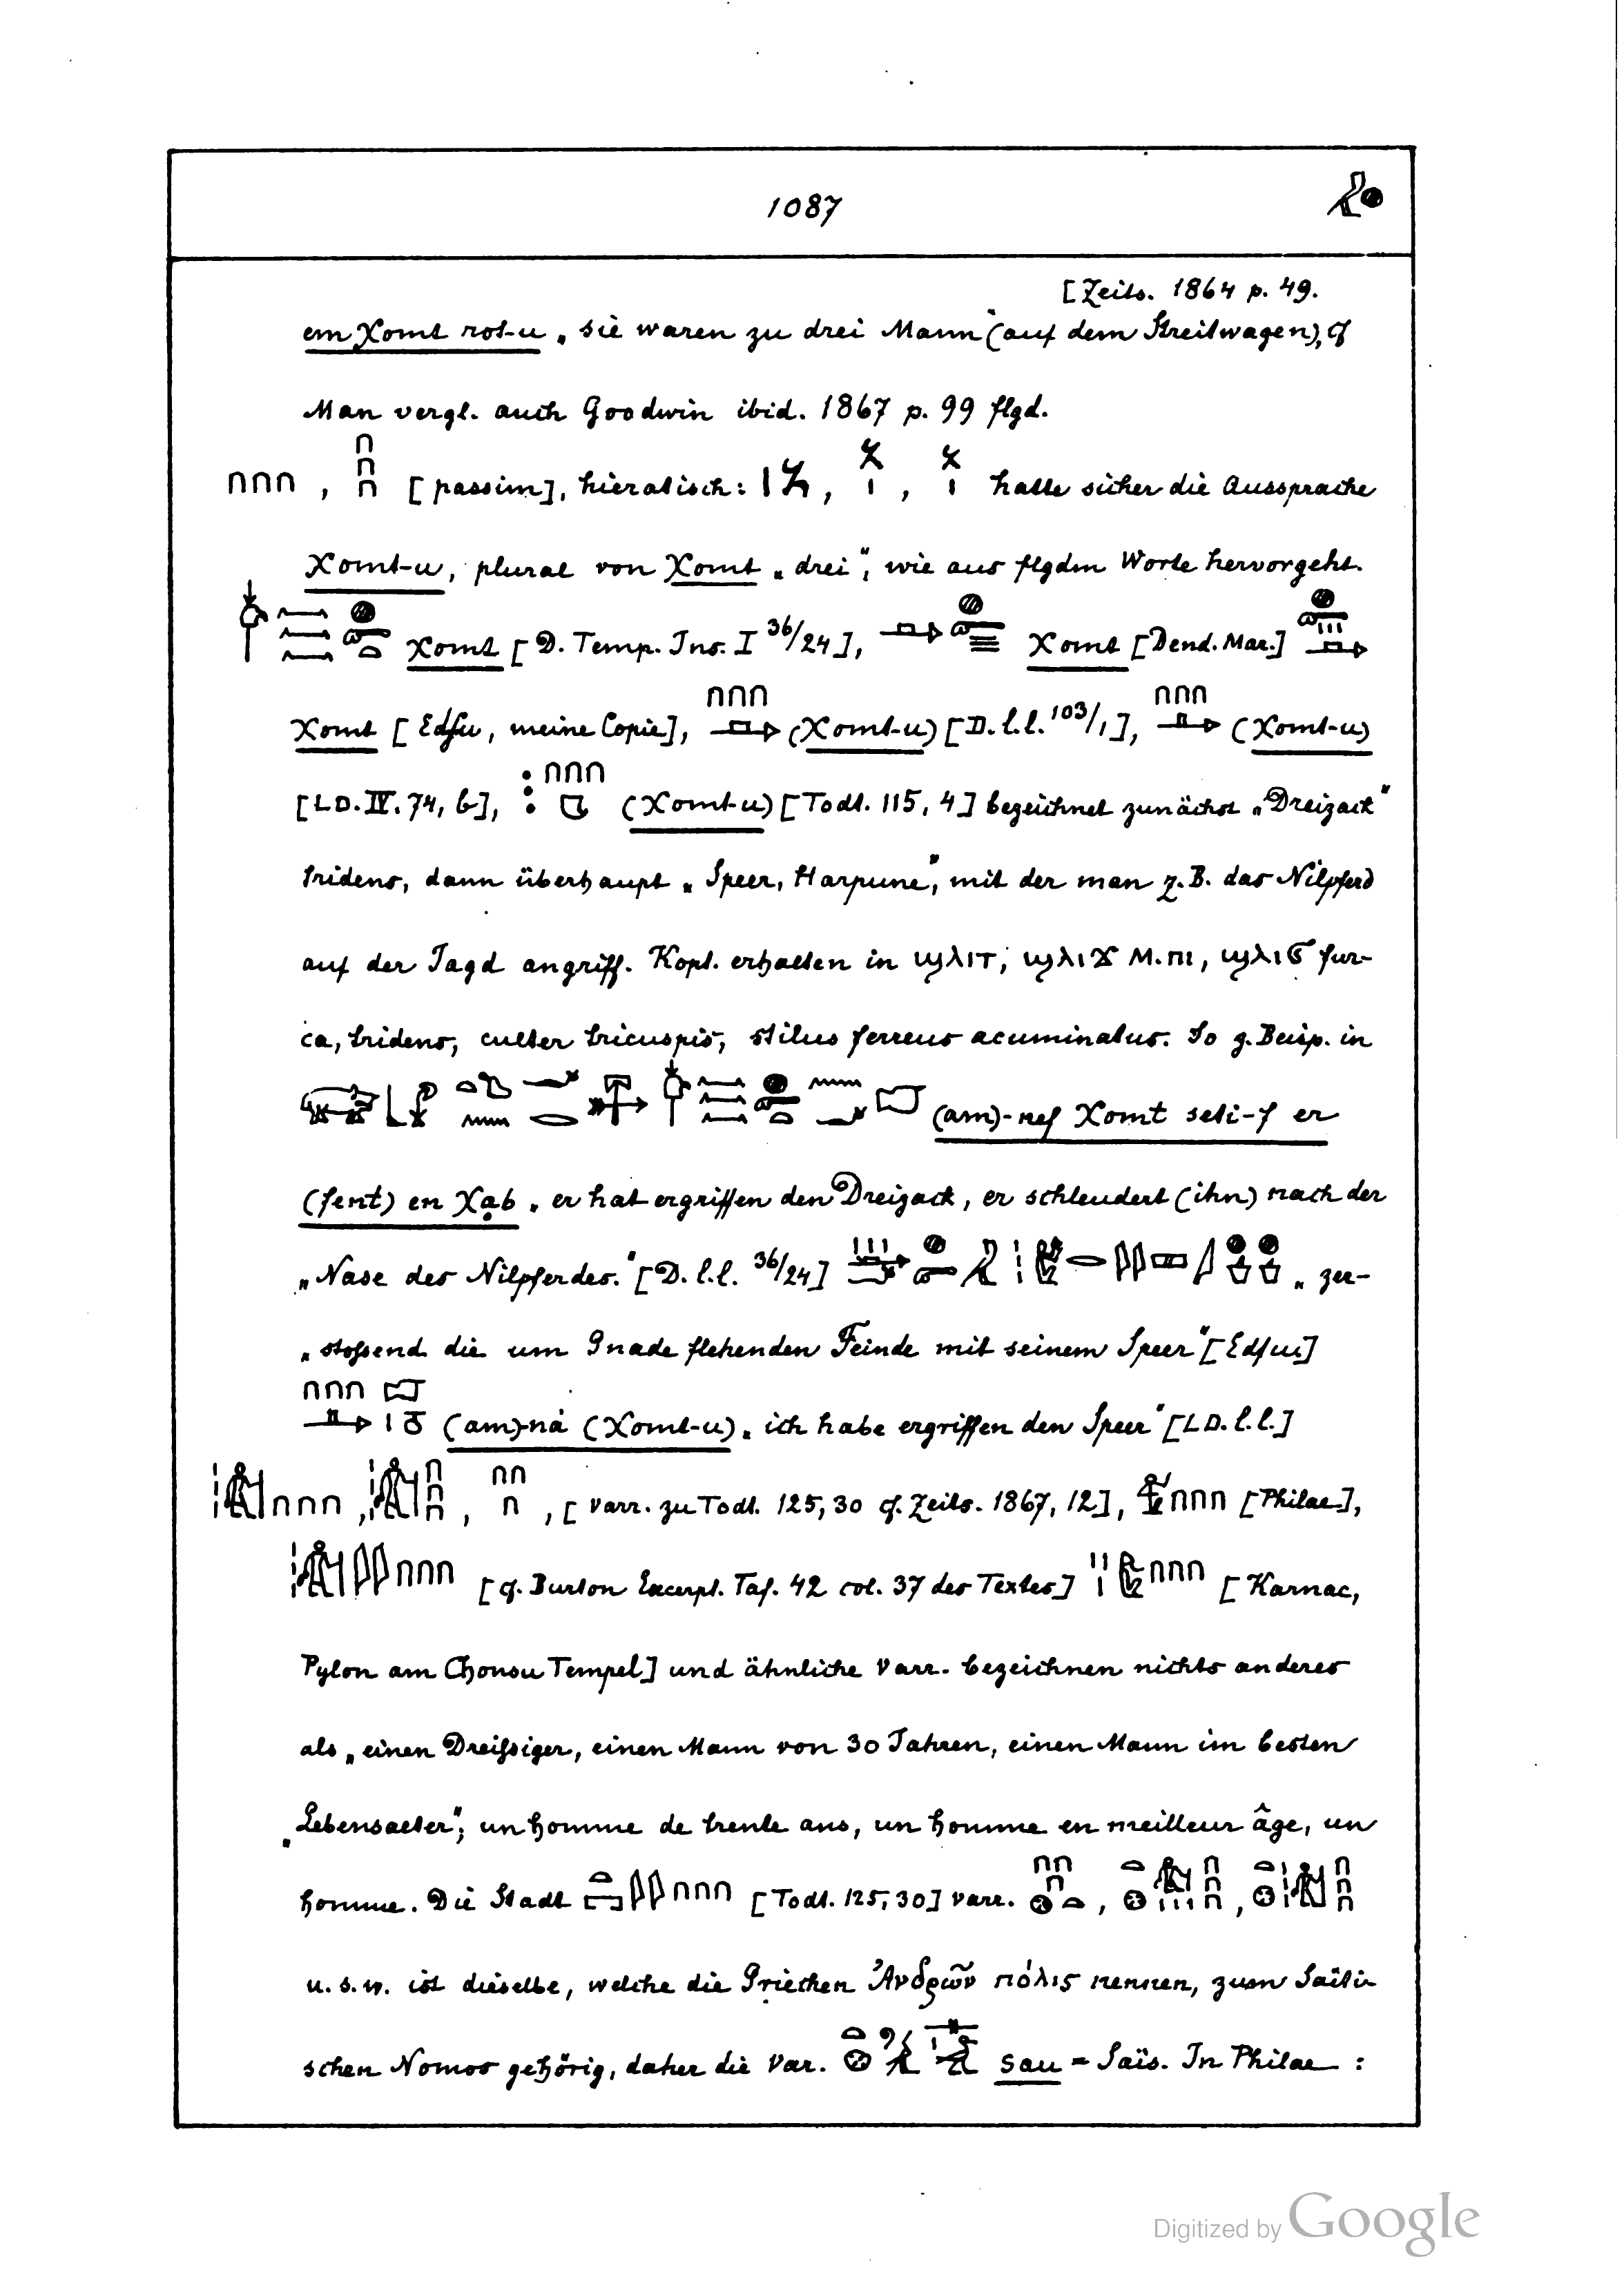 1087
[Zeits. 1864 p. 49.
em Xomt rot-u „sie waren zu drei Mann“ (auf dem Streitwagen), cf
Man vergl. auch Goodwin ibid. 1867 p. 99 flgd.
∩∩∩, [passim], hieratisch: hatte sicher die Aussprache
Xomt-u, plural von Xomt „drei“, wie aus flgdm Worte hervorgeht.
Xomt [D. Temp. Ins. I 36/24], Xomt [Dend. Mar.]
Xomt [Edfu, meine Copie], (Xomt-u) [D. l. l. 103/1], (Xomt-u)
[LD. IV. 74, b], (Xomt-u) [Todt. 115, 4] bezeichnet zunächst „Dreizack“
tridens, dann überhaupt „Speer, Harpune“, mit der man z. B. das Nilpferd
auf der Jagd angriff. Kopt. erhalten in ϣⲗⲓⲧ, ϣⲗⲓϫ M. ⲡⲓ, ϣⲗⲓϭ fur-
ca, tridens, culter tricuspis, stilus ferreus acuminatus. So z. Beisp. in
(am)-nef Xomt seti-f er
(fent) en Xab „er hat ergriffen den Dreizack, er schleudert (ihn) nach der
„Nase des Nilpferdes.“ [D. l. l. 36/24] „zer-
„stossend die um Gnade flehenden Feinde mit seinem Speer“ [Edfu]
(am)-ná (Xomt-u) „ich habe ergriffen den Speer“ [LD. l. l.]
∩∩∩, [varr. zu Todt. 125, 30 cf. Zeits. 1867, 12], ∩∩∩ [Philae],
∩∩∩ [cf. Burton Excerpt. Taf. 42 col. 37 des Textes] ∩∩∩ [Karnac,
Pylon am Chonsu Tempel] und ähnliche Varr. bezeichnen nichts anderes
als „einen Dreissiger, einen Mann von 30 Jahren, einen Mann im besten
„Lebensalter“, un homme de trente ans, un homme en meilleur âge, un
homme. Die Stadt ∩∩∩ [Todt. 125, 30] varr.
u. s. w. ist dieselbe, welche die Griechen Ἀνδρῶν πόλις nennen, zum Saïti-
schen Nomos gehörig, daher die Var. sau = Saïs. In Philae :
Digitized by Google